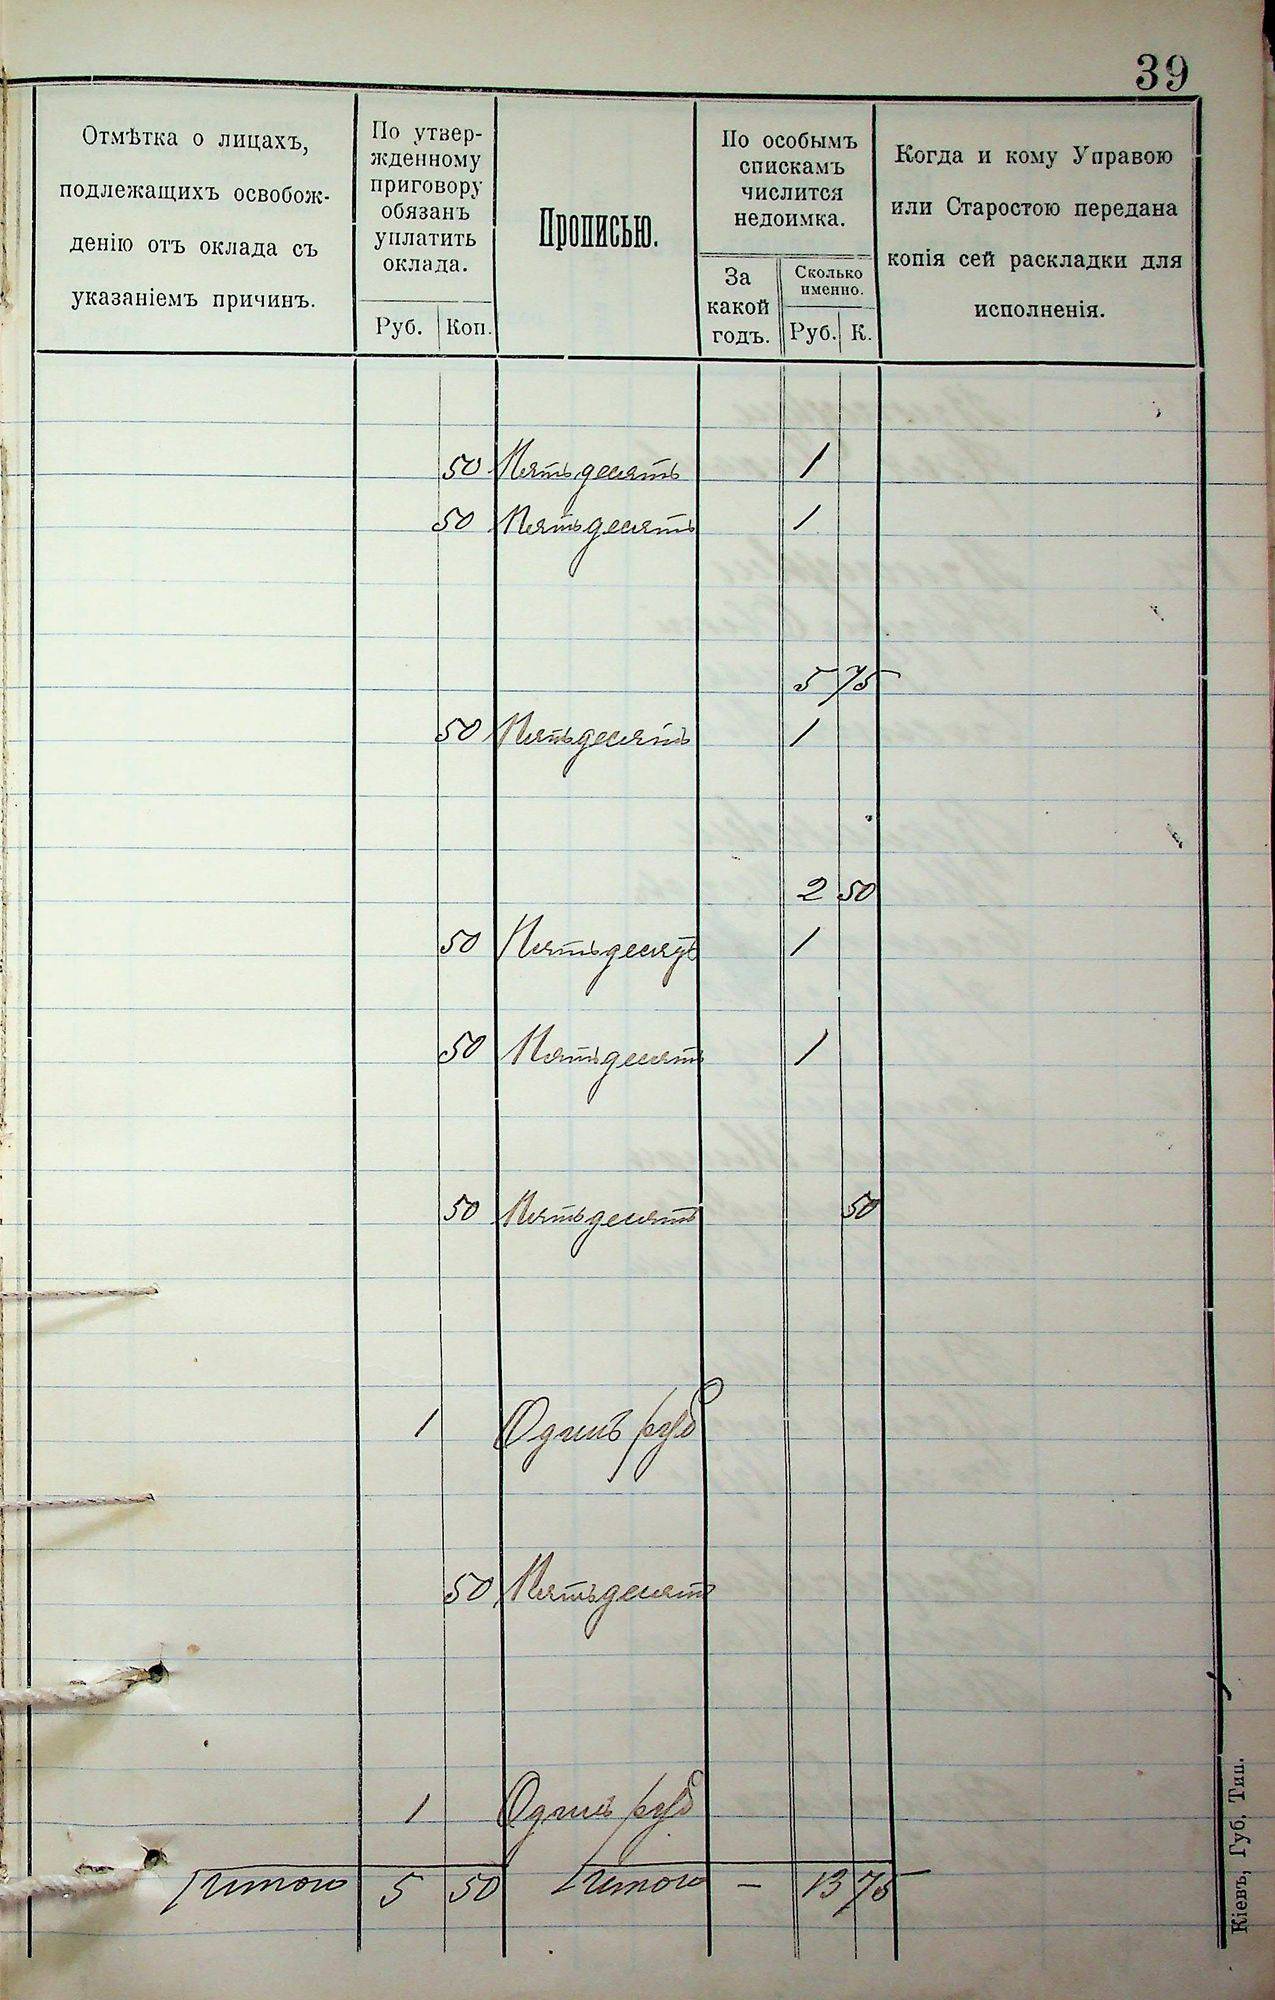 39
Отмѣтка о лицахъ,
подлежащихъ освобож-
денію отъ оклада съ
указаніемъ причинъ.
По утвер-
жденному
приговору
обязанъ
уплатить
оклада.
Руб. Коп.
Прописью.
По особымъ
спискамъ
числится
недоимка.
За
какой
годъ.
Сколько
именно.
Руб. К.
Когда и кому Управою
или Старостою передана
копія сей раскладки для
исполненія.
50 Пятьдесятъ 1
50 Пятьдесятъ 1
5 75
50 Пятьдесятъ 1
2 50
50 Пятьдесятъ 1
50 Пятьдесятъ 1
50 Пятьдесятъ 50
1 Одинъ руб
50 Пятьдесят
1 Одинъ руб
Итого 5 50 Итого — 13 75
Кіевъ, Губ. Тип.